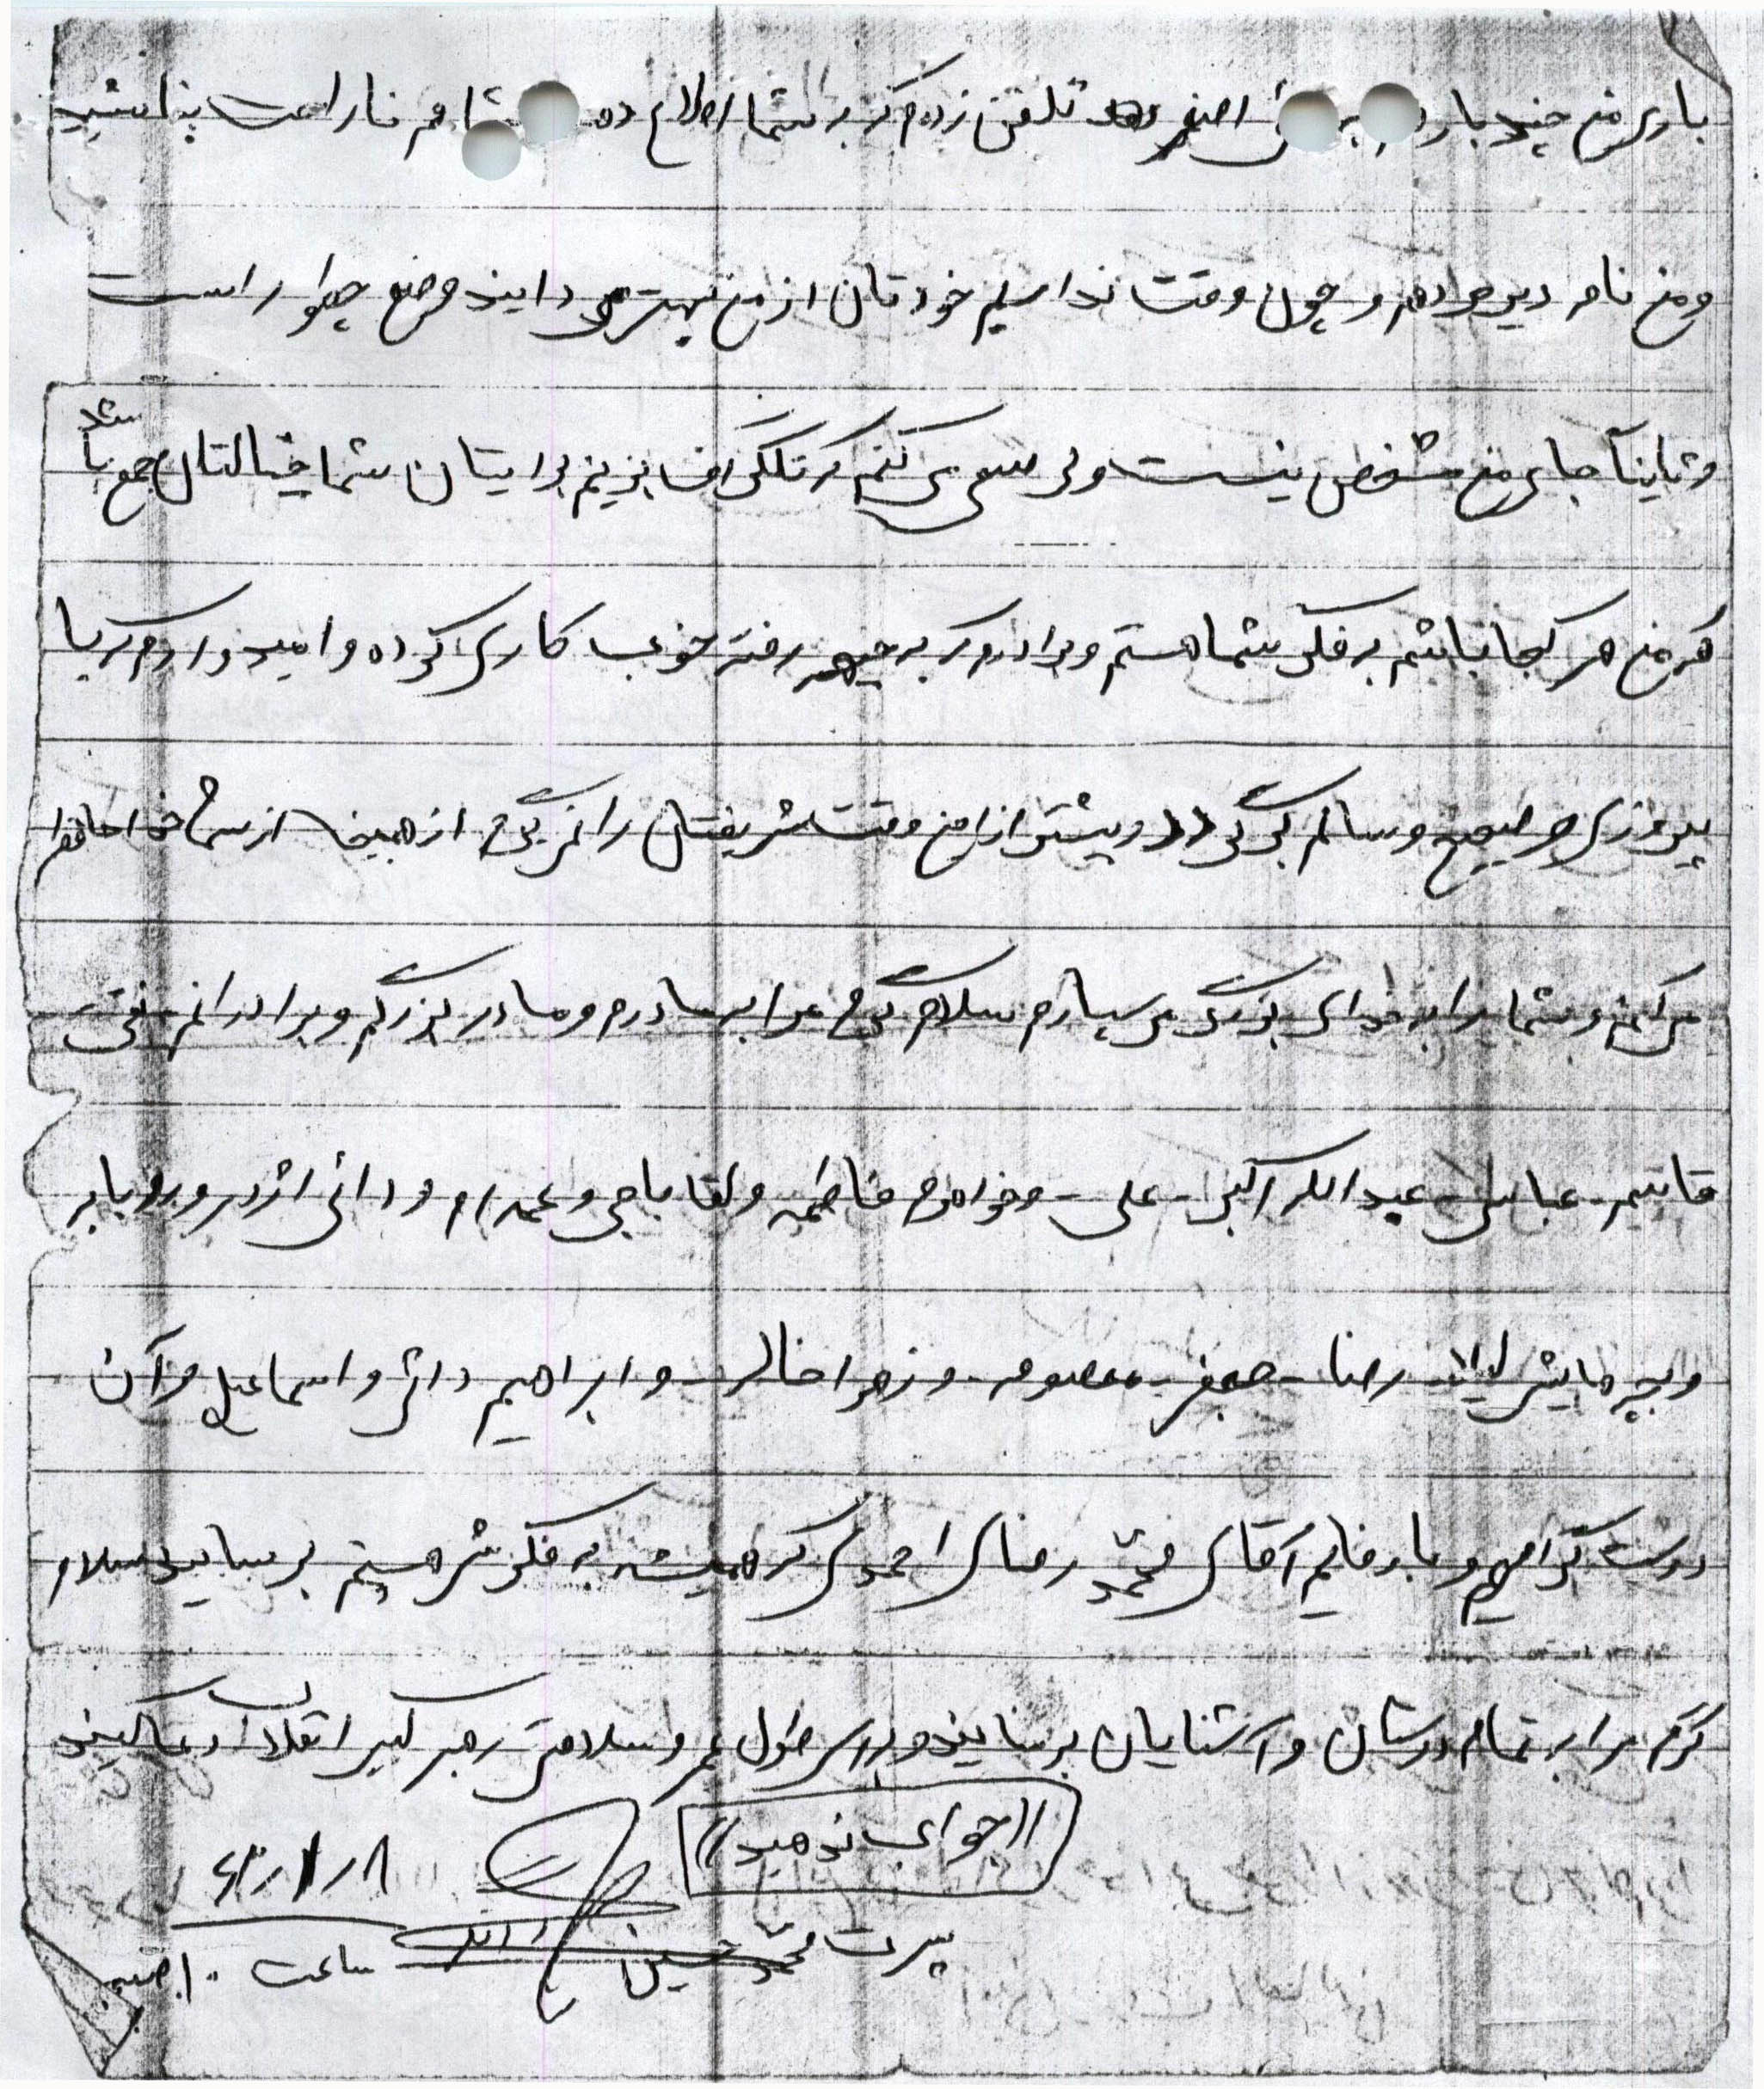 باری من چند بار به اصغر تلفن زده‌ام که به شما اطلاع ده هم ناراحت نباشید
و من نامه دیر دادم و چون وقت نداریم خودتان از من بهتر می دانید وضع چطور است
و ثایناً جای من مشخص نیست ولی سعی می کنم که تلگراف بزنیم برایتان شما خیالتان جمع باشد
که من هر کجا باشم به فکر شما هستم و برادرم که به جبهه رفته خوب کاری کرده و امیدوارم که با
پیروزی و صحیح و سالم برگردد و بیشتر از این وقت شریفتان را نمی‌گیرم از همینجا از شما خداحافظی
می کنم و شما را به خدای بزرگ می سپارم سلام گرم مرا به مادرم و مادر بزرگم و برادرانم نقی
قاسم - عباس - عبداله اکبر - علی - وخواهرم فاطمه و لقا باجی و عمه ام و دائی اژدر و
و بچه هایش لیلا - رضا - جعفر - معصومه - و زهرا خاله - و ابراهیم دائی و اسماعیل و آن
دوست گرامیم و با وفایم آقای محمّد رضای احمدی که همیشه به فکرش هستم برسانید سلام
گرم مرا به تمام دوستان و آشنایان برسانید و برای طول عمر و سلامتی رهبر کبیر انقلاب دعا کنید
((جواب ندهید))
۶۳/۱/۱۸
پسرت محمّد حسین ساعت ۱۰ صبح